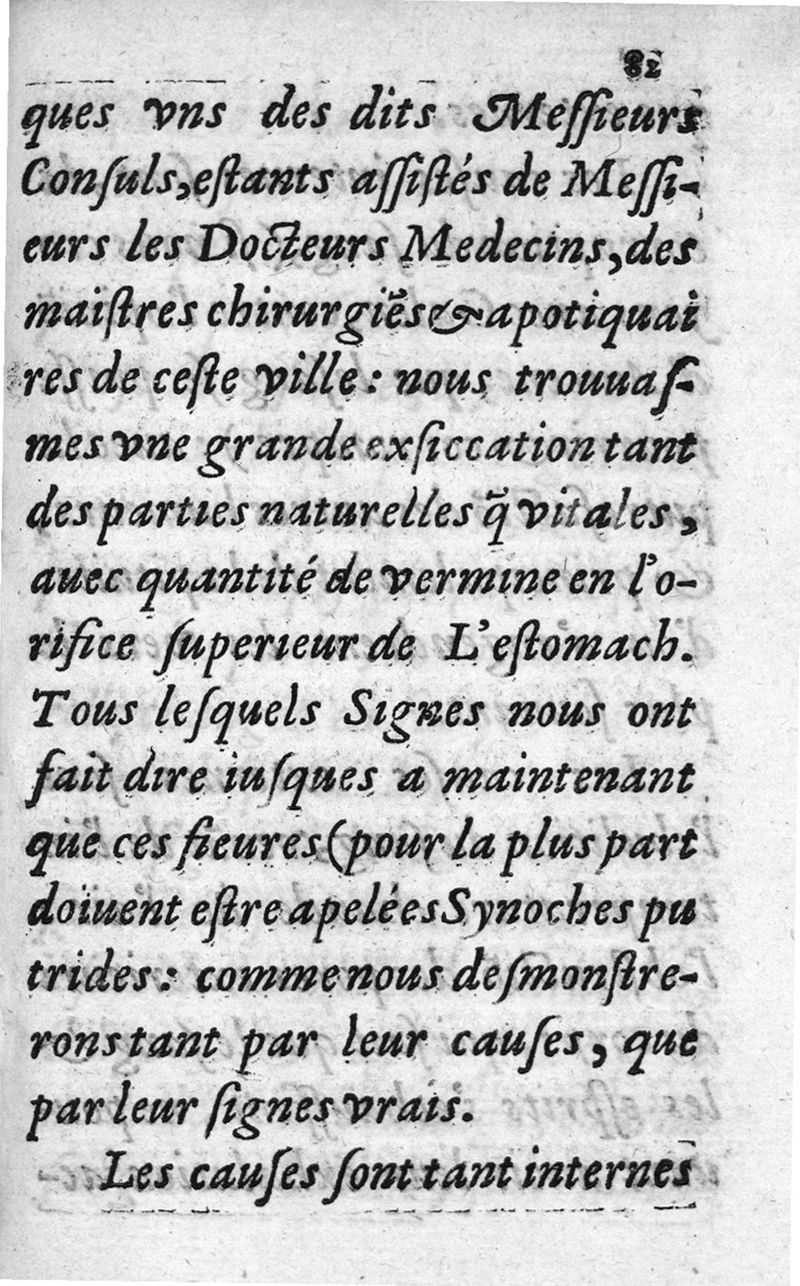 82
ques vns des dits Meſſieurs
Conſuls,eſtants aſſiſtés de Meſſi-
eurs les Docteurs Medecins,des
maiſtres chirurgiẽs&apotiquai
res de ceſte ville: nous trouuaſ-
mes vne grande exſiccation tant
des parties naturelles q̃ vitales,
auec quantité de vermine en l'o-
rifice ſuperieur de L'eſtomach.
Tous leſquels Signes nous ont
fait dire iuſques a maintenant
que ces fieures(pour la plus part
doiuent eſtre apelées Synoches pu
trides: comme nous deſmonſtre-
rons tant par leur cauſes, que
par leur ſignes vrais.
Les cauſes ſont tant internes